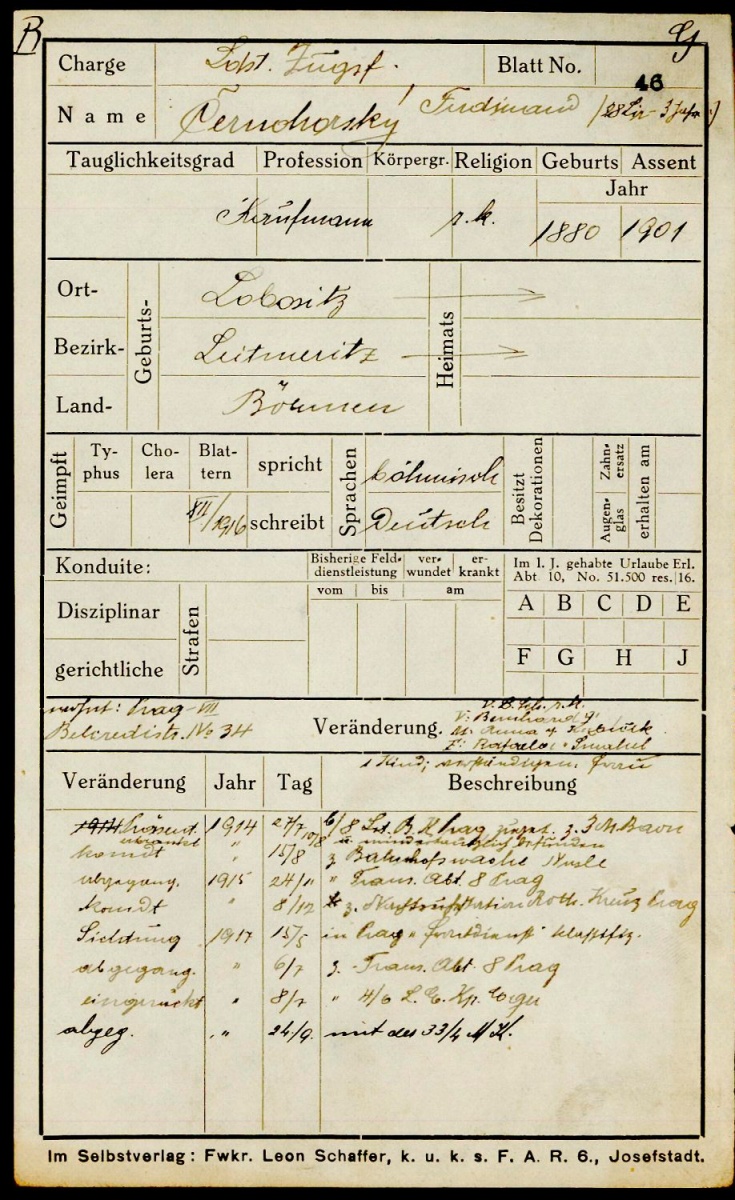 B G
Charge Ldst. Zugsf. Blatt No. 46
Name Černohorský Ferdinand
Tauglichkeitsgrad Profession Körpergr. Religion Geburts Assent
Jahr
Kaufmann r. k. 1880 1901
Ort- Lobositz
Geburts- Heimats
Bezirk- Leitmeritz
Land- Böhmen
Geimpft Typhus Cholera Blattern spricht Sprachen böhmisch Besitzt Dekorationen Augenglas Zahnersatz erhalten am
VII/1916 schreibt Deutsch
Konduite: Bisherige Felddienstleistung verwundet erkrankt Im l. J. gehabte Urlaube Erl.
Abt 10, No. 51.500 res. 16.
vom bis am
Disziplinar Strafen A B C D E
gerichtliche F G H J
wohnt: Prag-VII
Belcredistr. No 34 Veränderung.
V: Bernhard
M: Anna
1 Kind; Frau
Veränderung Jahr Tag Beschreibung
1914 27/7 Prag z.
komdt " 15/8 z. Bahnhofswache Nusle
abgegang. 1915 24/11 " Trans. Abt. 8 Prag
komdt " 8/12 z. Roth. Kreuz Prag
Sichtung 1917 15/5 in Prag "Frontdienst" klassifiz.
abgegang. " 6/7 z. Trans. Abt 8 Prag
eingerückt " 8/7 " 4/6 L. E. Kp. Eger
abgeg. " 24/9. mit der 33/4 M. K.
Im Selbstverlag: Fwkr. Leon Schaffer, k. u. k. s. F. A. R. 6., Josefstadt.